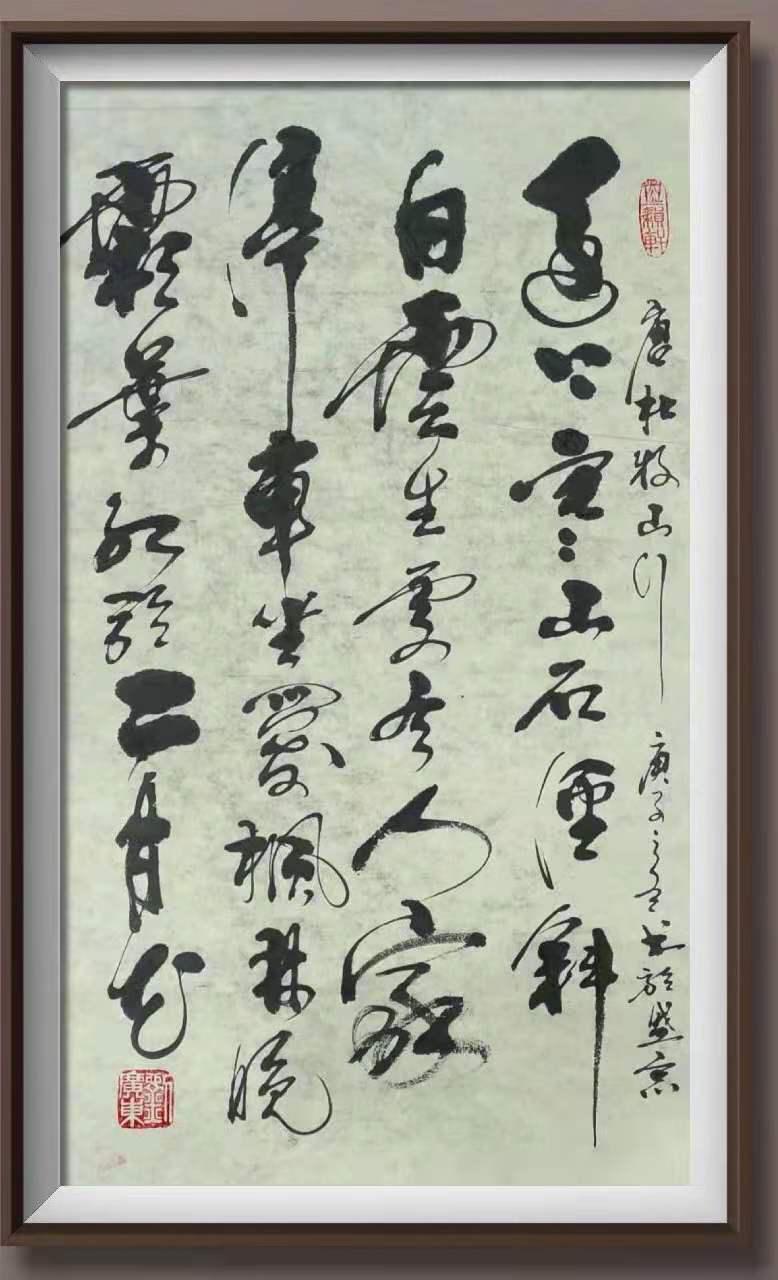 唐杜牧山行 庚子之書於盛京
遠上寒山石徑斜
白雲生處有人家
停車坐愛楓林晚
霜葉紅於二月花
劉廣東